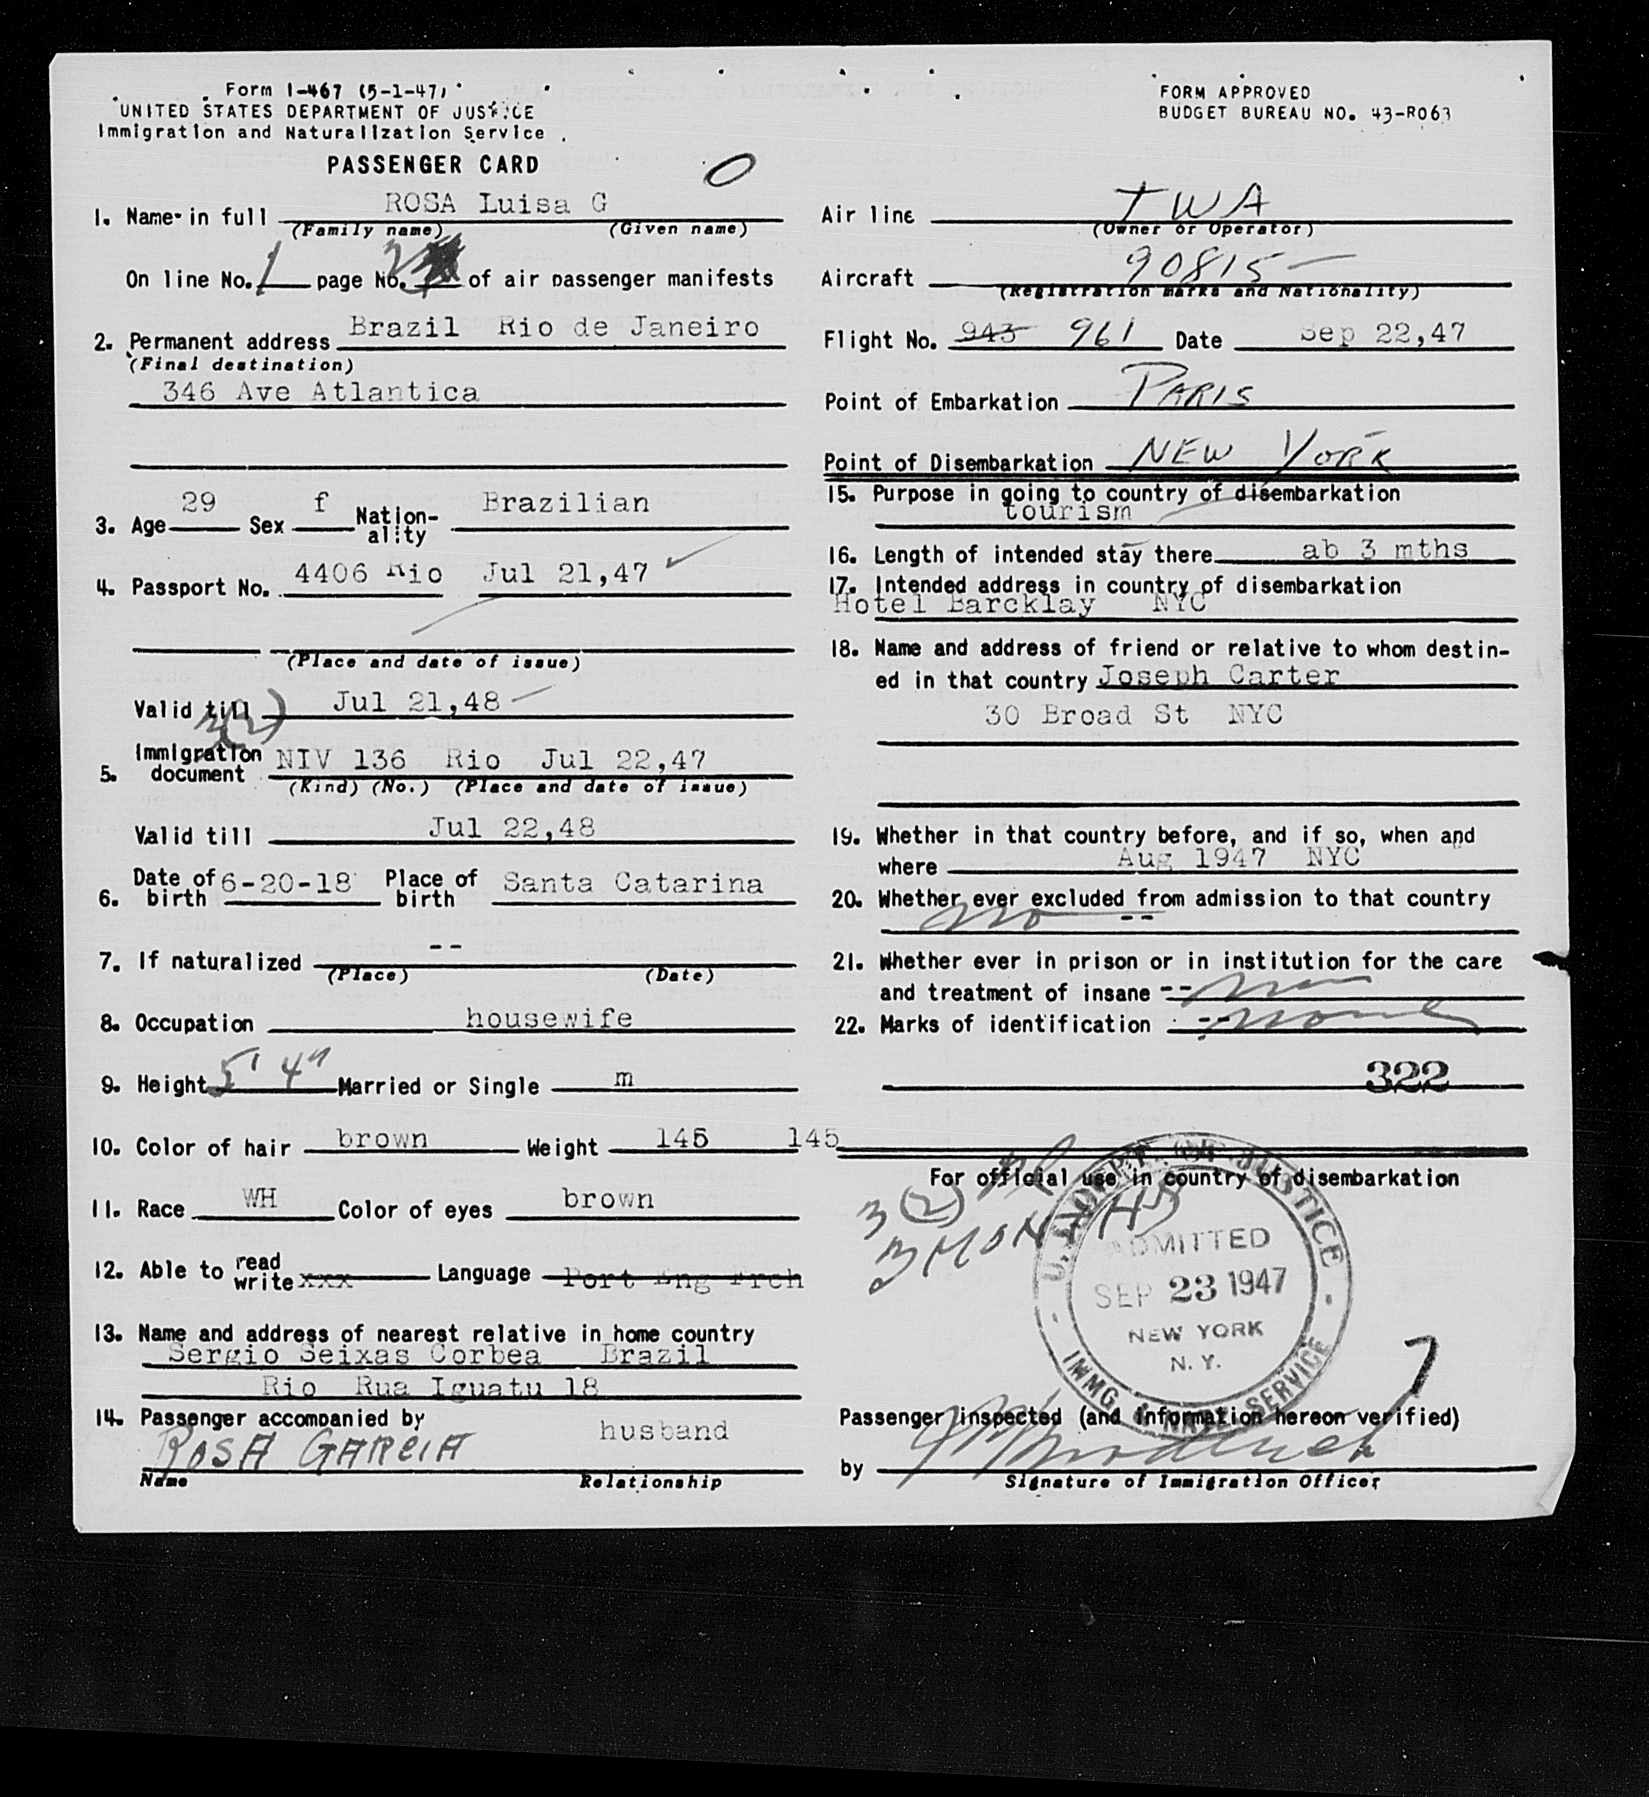 Form I-467 (5-1-47)
UNITED STATES DEPARTMENT OF JUSTICE
Immigration and Naturalization Service
PASSENGER CARD
0
1. Name in full ROSA Luisa G
(Family name) (Given name)
On line No. 1 page No. of air passenger manifests
2. Permanent address Brazil Rio de Janeiro
(Final destination)
346 Ave Atlantica
3. Age 29 Sex f Nation-ality Brazilian
4. Passport No. 4406 Rio Jul 21,47
(Place and date of issue)
Valid till Jul 21,48
3(2)
5. Immigration document NIV 136 Rio Jul 22,47
(Kind) (No.) (Place and date of issue)
Valid till Jul 22,48
6. Date of birth 6-20-18 Place of birth Santa Catarina
7. If naturalized --
(Place) (Date)
8. Occupation housewife
9. Height 5' 4" Married or Single m
10. Color of hair brown Weight 145 145
11. Race WH Color of eyes brown
12. Able to read write xxx Language Port Eng Frch
13. Name and address of nearest relative in home country
Sergio Seixas Corbea Brazil
Rio Rua Iguatu 18
14. Passenger accompanied by
ROSA GARCIA husband
Name Relationship
FORM APPROVED
BUDGET BUREAU NO. 43-R063
Air line TWA
(Owner or Operator)
Aircraft 90815
(Registration marks and Nationality)
Flight No. 943 961 Date Sep 22,47
Point of Embarkation PARIS
Point of Disembarkation NEW YORK
15. Purpose in going to country of disembarkation
tourism
16. Length of intended stay there ab 3 mths
17. Intended address in country of disembarkation
Hotel Barcklay NYC
18. Name and address of friend or relative to whom destin-
ed in that country Joseph Carter
30 Broad St NYC
19. Whether in that country before, and if so, when and
where Aug 1947 NYC
20. Whether ever excluded from admission to that country
no --
21. Whether ever in prison or in institution for the care
and treatment of insane -- no
22. Marks of identification -- none
322
For official use in country of disembarkation
3(2)
3 MONTHS
U.S. DEPT. OF JUSTICE
ADMITTED
SEP 23 1947
NEW YORK
N. Y.
IMMG. & NATZ. SERVICE
7
Passenger inspected (and information hereon verified)
by
Signature of Immigration Officer